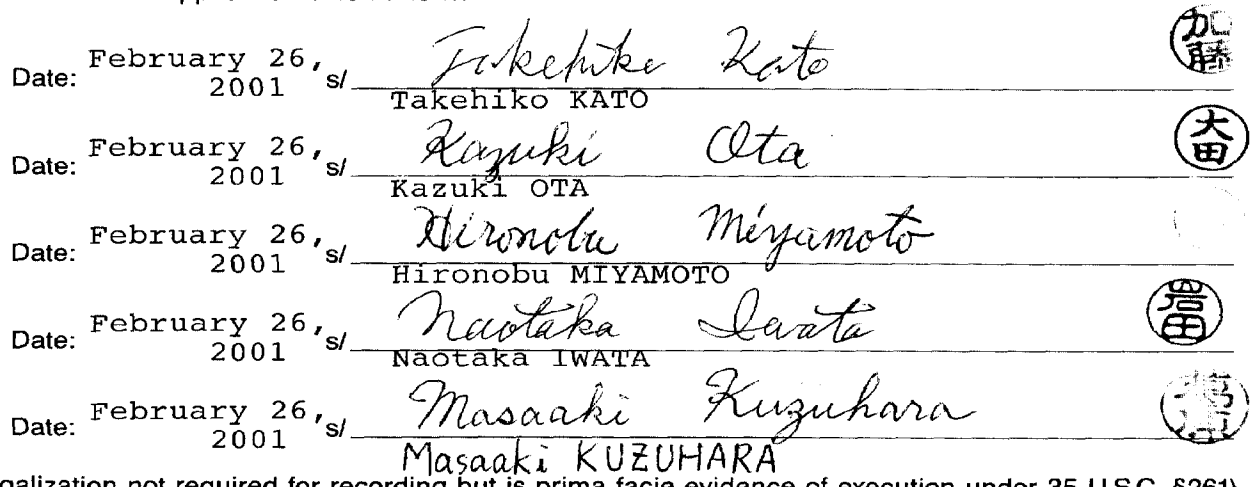 Date: February 26, 2001 s/ Takehiko Kato 加藤
Takehiko KATO
Date: February 26, 2001 s/ Kazuki Ota 大田
Kazuki OTA
Date: February 26, 2001 s/ Hironobu Miyamoto
Hironobu MIYAMOTO
Date: February 26, 2001 s/ Naotaka Iwata 岩田
Naotaka IWATA
Date: February 26, 2001 s/ Masaaki Kuzuhara
Masaaki KUZUHARA
galization not required for recording but is prima facie evidence of execution under 35 U.S.C. §261)